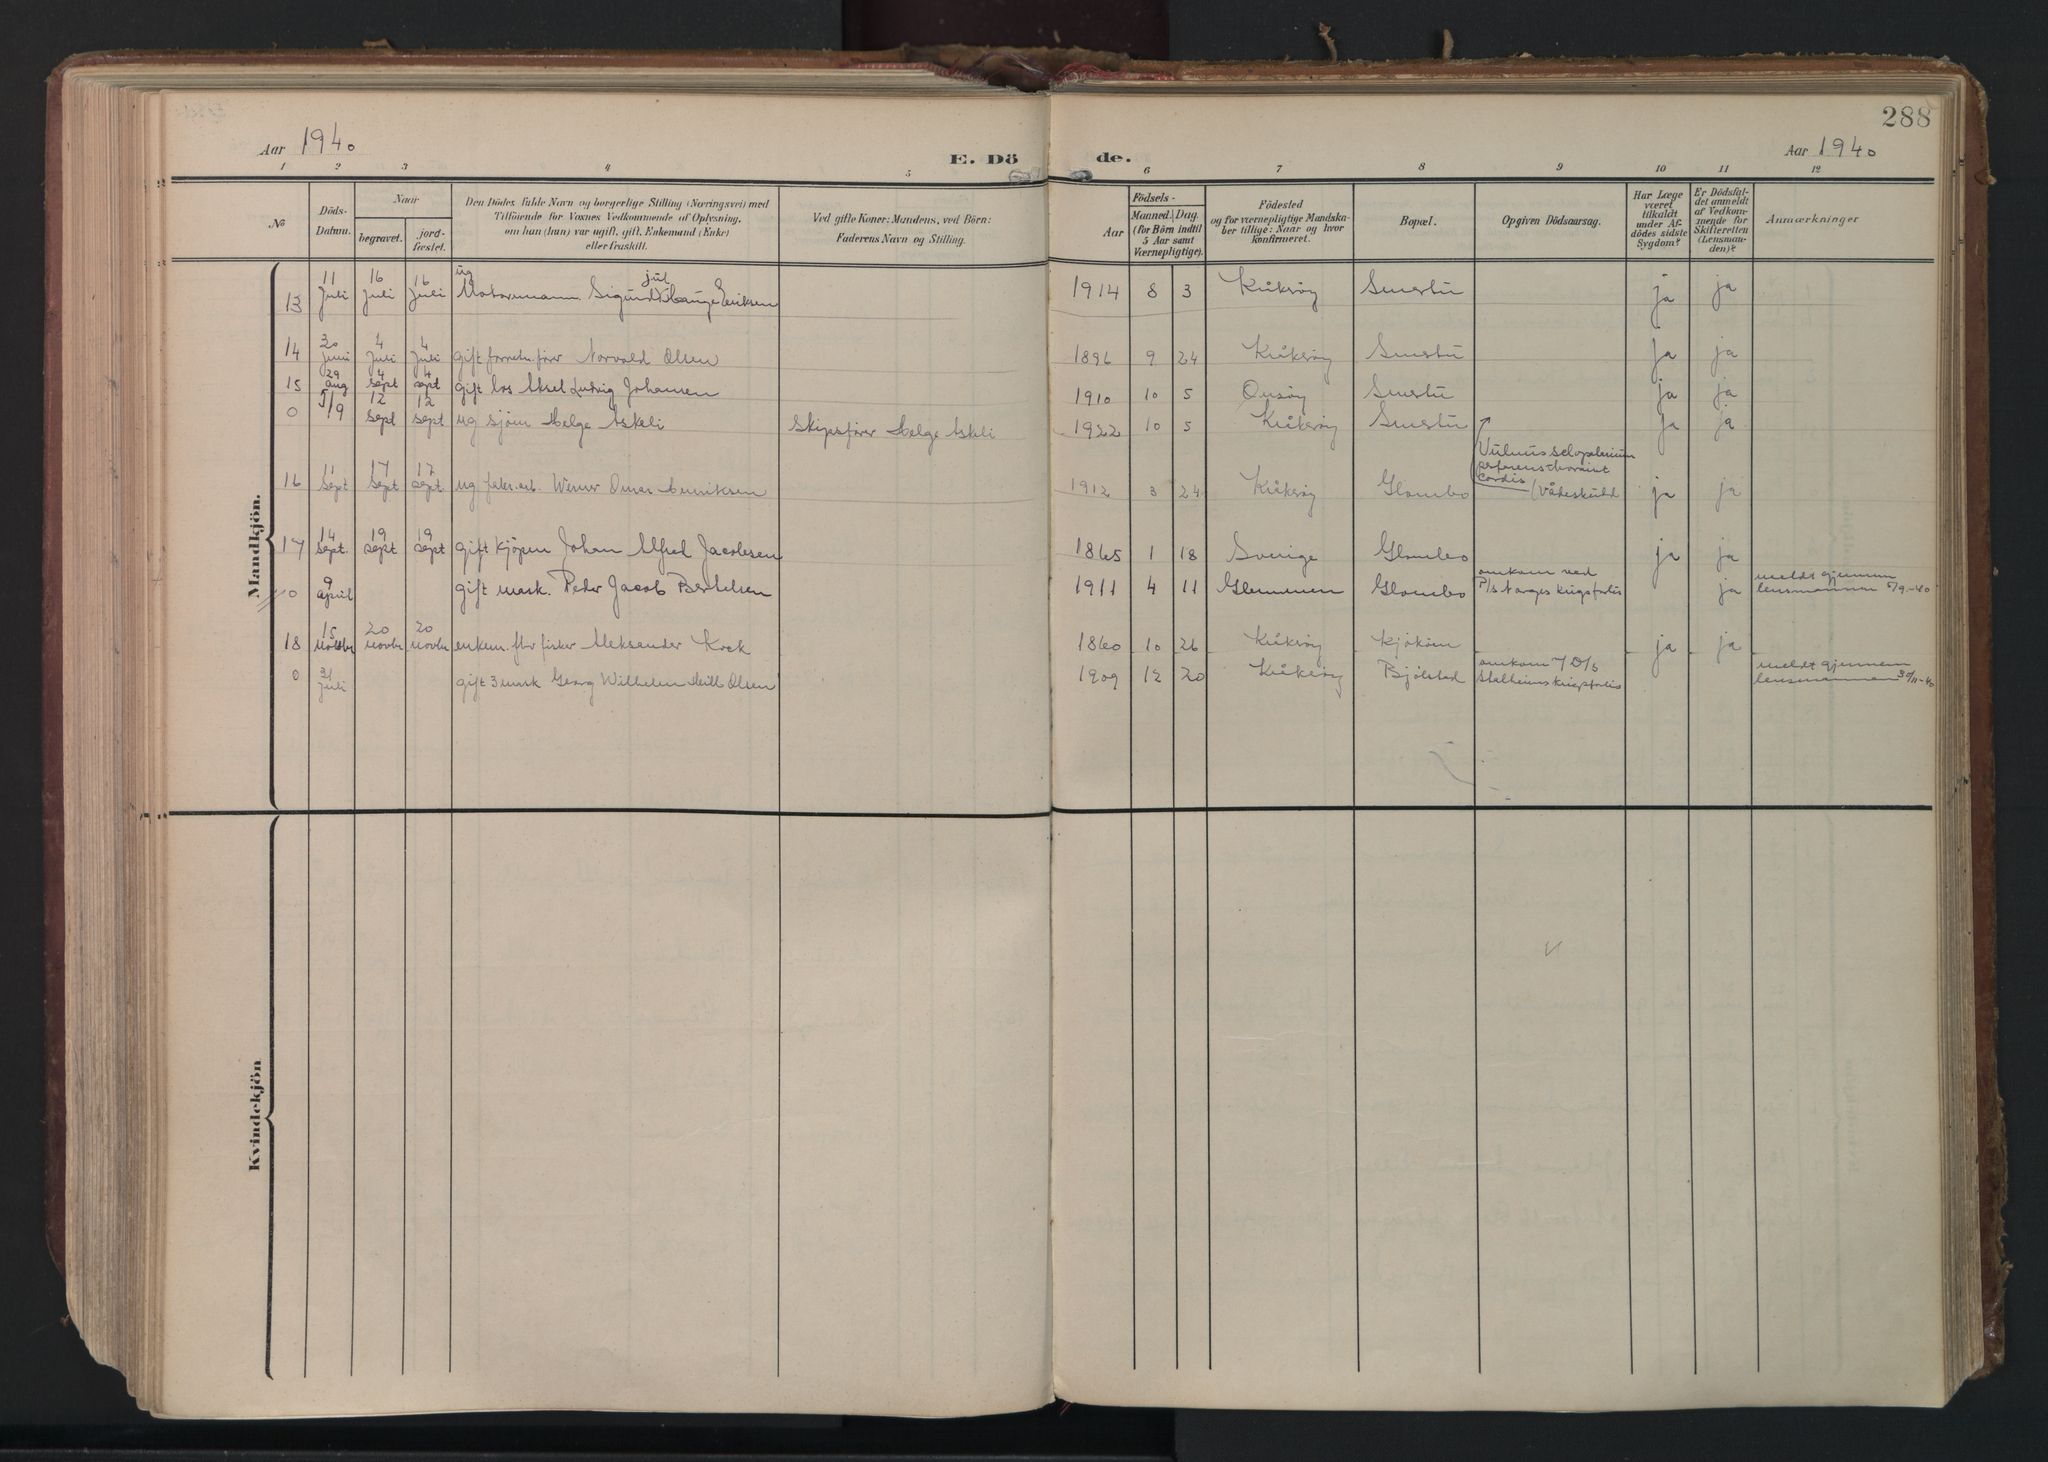 288
Aar 1940 E. Dö de. Aar 1940
1 2 3 4 5 6 7 8 9 10 11 12
No
Döds-Datum.
Naar
begravet.
jord-fæstet.
Den Dödes fulde Navn og borgerlige Stilling (Næringsvei) med
Tilföiende for Voxnes Vedkommende af Oplysning,
om han (hun) var ugift, gift, Enkemand (Enke)
eller fraskilt.
Ved gifte Koner: Mandens, ved Börn:
Faderens Navn og Stilling.
Födsels-
Aar
Maaned. Dag.
(for Börn indtil
5 Aar samt
Værnepligtige).
Födested
og for værnepligtige Mandska-
ber tillige: Naar og hvor
konfirmeret.
Bopæl.
Opgiven Dödsaarsag.
Har Læge
været
tilkaldt
under Af-
dödes sidste
Sygdom?
Er Dödsfal-
det anmeldt
af Vedkom-
mende for
Skifteretten
(Lensman-
den)?
Anmærkninger
Mandkjön.
13 11 juli 16 juli 16 juli ug Motormann Sigurd Hauge Eriksen 1914 8 3 Kråkerøy Smertu ja ja
14 30 juni 4 juli 4 juli gift forretn.fører Norvald Olsen 1896 9 24 Kråkerøy Smertu ja ja
15 29 aug 4 sept 4 sept gift los Aksel Ludvig Johansen 1910 10 5 Onsøy Smertu ja ja
0 5/9 12 sept 12 sept ug sjøm Helge Askeli Skipsfører Helge Askeli 1922 10 5 Kråkerøy Smertu ja ja
16 11 sept 17 sept 17 sept ug fabr.arb. Werner Omar Henriksen 1912 3 24 Kråkerøy Glombo Vulnus sclopetarium
perforans
cordis (Vådeskudd ja ja
17 14 sept. 19 sept 19 sept gift kjøpm Johan Alfred Jacobsen 1865 1 18 Sverige Glombo ja ja
0 9 april gift mask. Peder Jacob Bertelsen 1911 4 11 Glemmen Glombo omkom ved
Norges krigsforlis ja meldt gjennem
lensmannen 5/9-40
18 15 novbr 20 novbr 20 novbr enkem. fhv fisker Aleksander Kook 1860 10 26 Kråkerøy Kjøkøen ja ja
0 juli gift 3 mask Georg Wilhelm Olsen 1909 12 20 Kråkerøy Bjølstad omkom D/S
Stalheims krigsforlis meldt gjennem
lensmannen 30/11-40
Kvindekjön